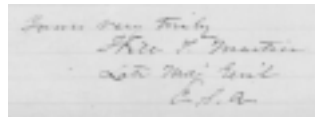 Yours very truly
Theo S. Martin
Late Maj Genl
C. S. A.